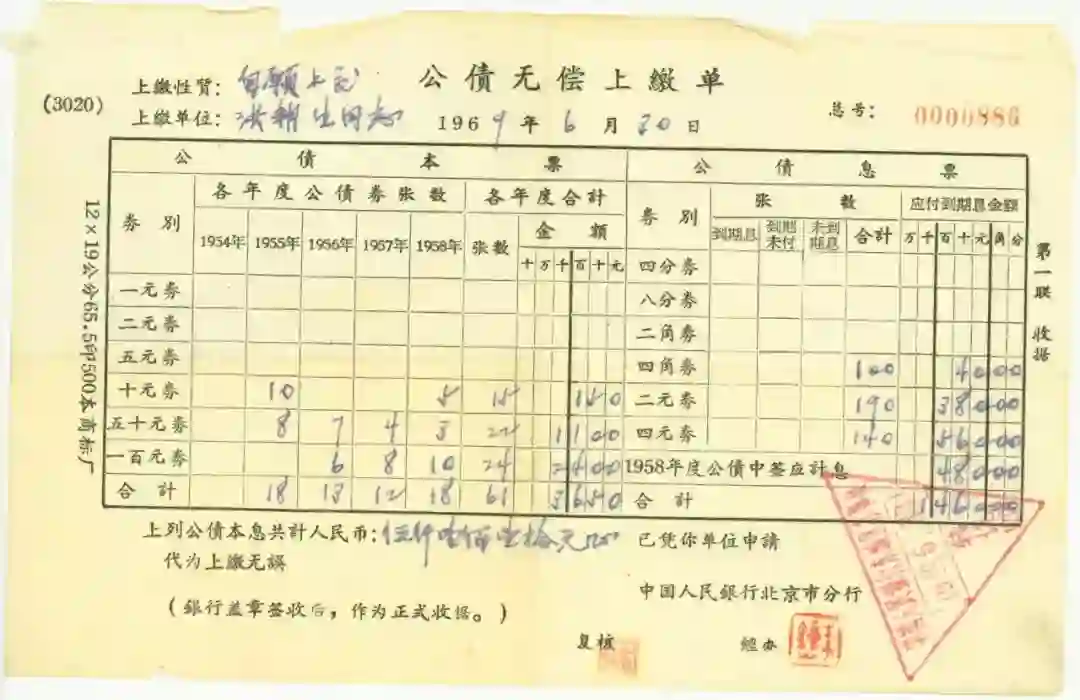 公债无偿上缴单
(3020)
上缴性质：自愿上缴
总号：0000886
上缴单位：洪 生同志 1969年6月30日
公债本票 公债息票
券别 各年度公债券张数 各年度合计 券别 张数 应付到期息金额
1954年 1955年 1956年 1957年 1958年 张数 金额 到期息 到期未付 未到期息 合计 万千百十元角分
十万千百十元
四分券
一元券 八分券
二元券 二角券
五元券 四角券 100 4000
十元券 10 5 15 150 二元券 190 38000
五十元券 8 7 4 3 22 1100 四元券 140 56000
一百元券 6 8 10 24 2400 1958年度公债中签应计息 48000
合计 18 13 12 18 61 3650 合计 146000
上列公债本息共计人民币：伍仟壹佰壹拾元 已凭你单位申請
代为上缴无誤
中国人民銀行北京市分行
(銀行盖章签收后，作为正式收据。)
复核 經办
第一联 收据
12×19公分65.5印500本商标厂